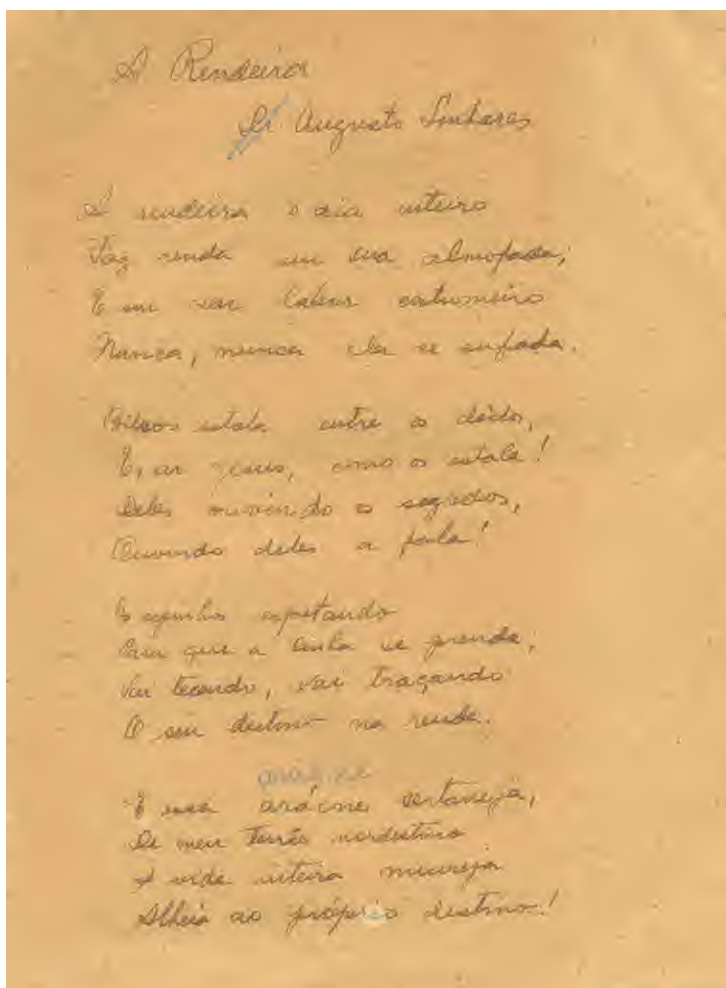 A Rendeira
De Augusto Linhares
A rendeira o dia inteiro
Faz renda em sua almofada;
E em seu labor costumeiro
Nunca, nunca ela se enfada.
Bilros estala entre os dedos,
E, ai Jesus, como os estala!
Deles ouvindo os segredos,
Ouvindo deles a fala!
Os espinhos espetando
Em que a linha se prende,
Vai tecendo, vai traçando
O seu destino na renda.
aracne
E essa arácne sertaneja,
De meu torrão nordestino
A vida inteira moureja
Alheia ao próprio destino!